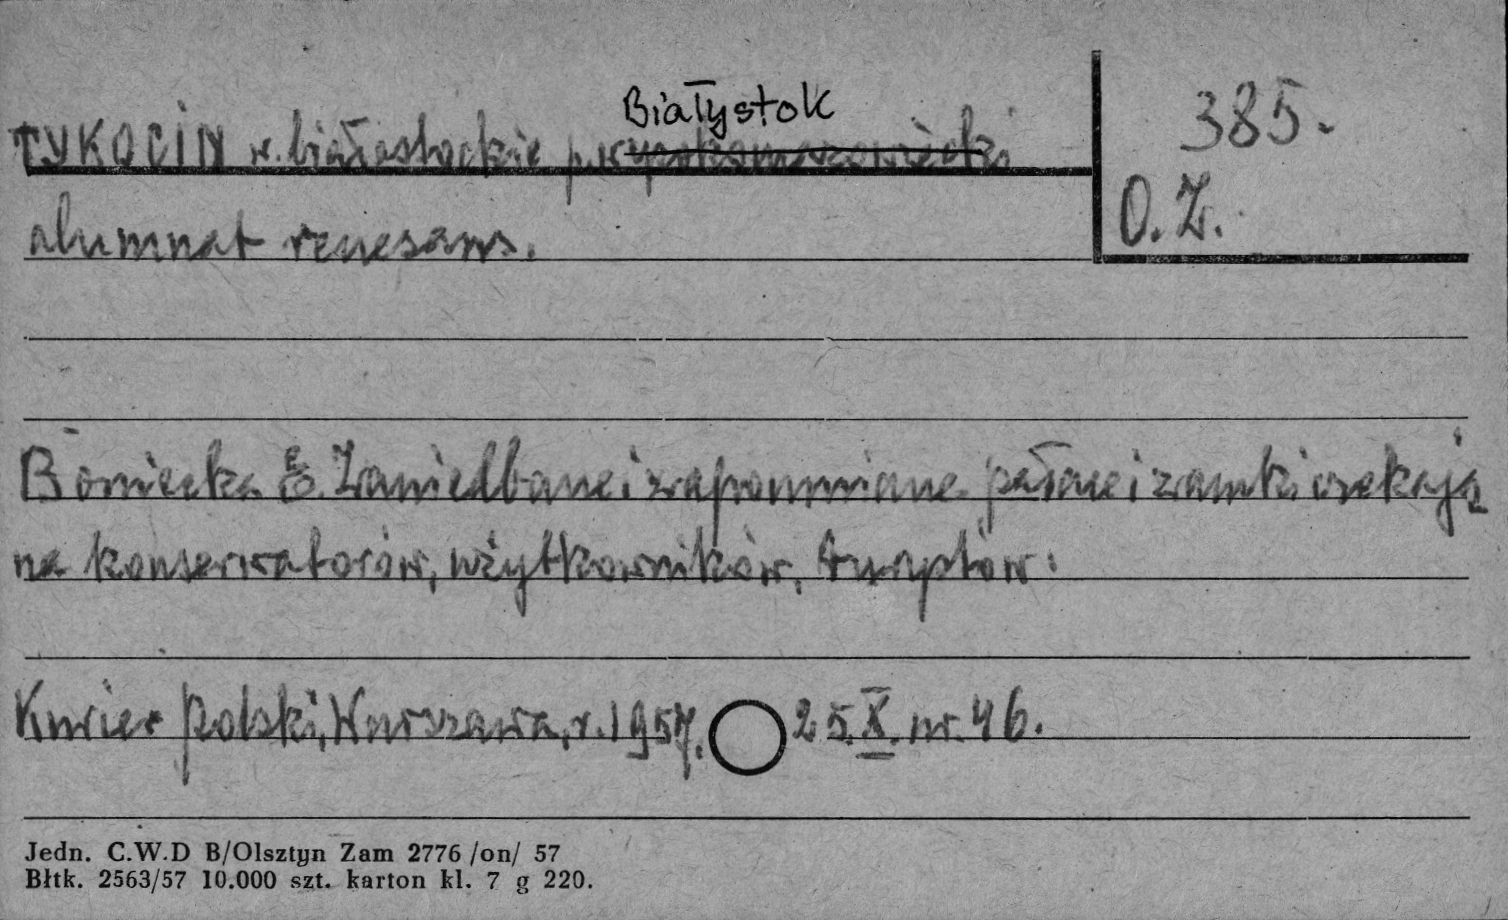 Białystok
TYKOCIN w. białostockie p. wysokomazowiecki
385.
O.Z.
alumnat renesans.
Boniecka E. Zaniedbane i zapomniane pałace i zamki czekają
na konserwatorów, użytkowników, turystów.
Kurier Polski, Warszawa, r. 1957. 25.X. nr. 46.
Jedn. C.W.D B/Olsztyn Zam 2776 /on/ 57
Błtk. 2563/57 10.000 szt. karton kl. 7 g 220.